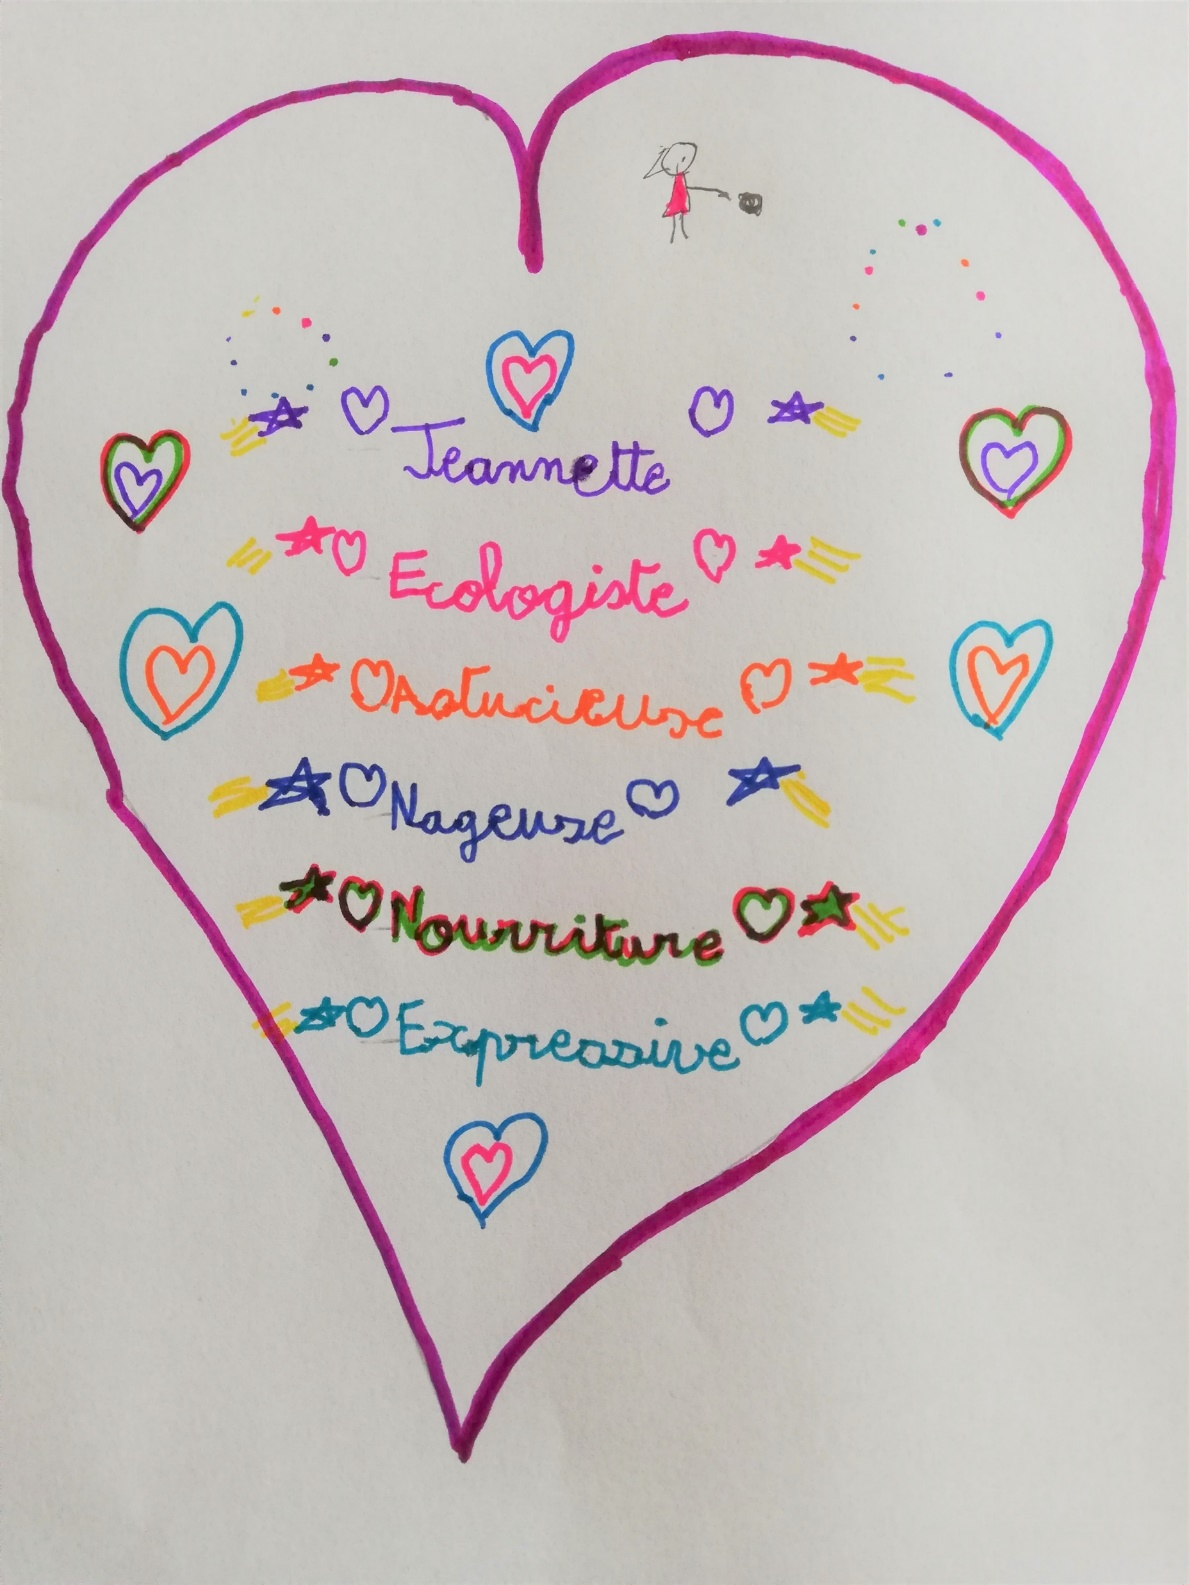 Jeannette
Ecologiste
Astucieuse
Nageuse
Nourriture
Expressive